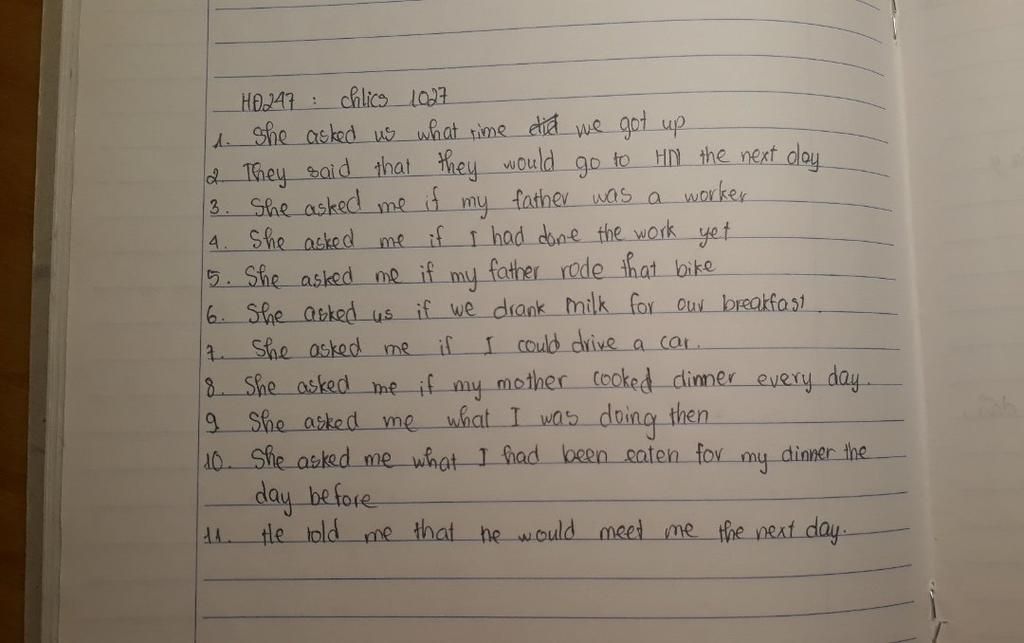 HĐ247 : chlics 1027
1. She asked us what time did we got up
2. They said that they would go to HN the next day
3. She asked me if my father was a worker
4. She asked me if I had done the work yet
5. She asked me if my father rode that bike
6. She asked us if we drank milk for our breakfast.
7. She asked me if I could drive a car.
8. She asked me if my mother cooked dinner every day.
9 She asked me what I was doing then
10. She asked me what I had been eaten for my dinner the
day before
11. He told me that he would meet me the next day.